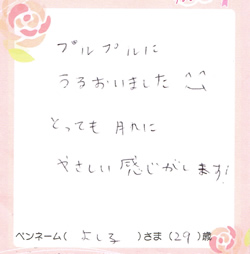 プルプルに
うるおいました
とっても肌に
やさしい感じがします!
ペンネーム(よしこ)さま(29)歳